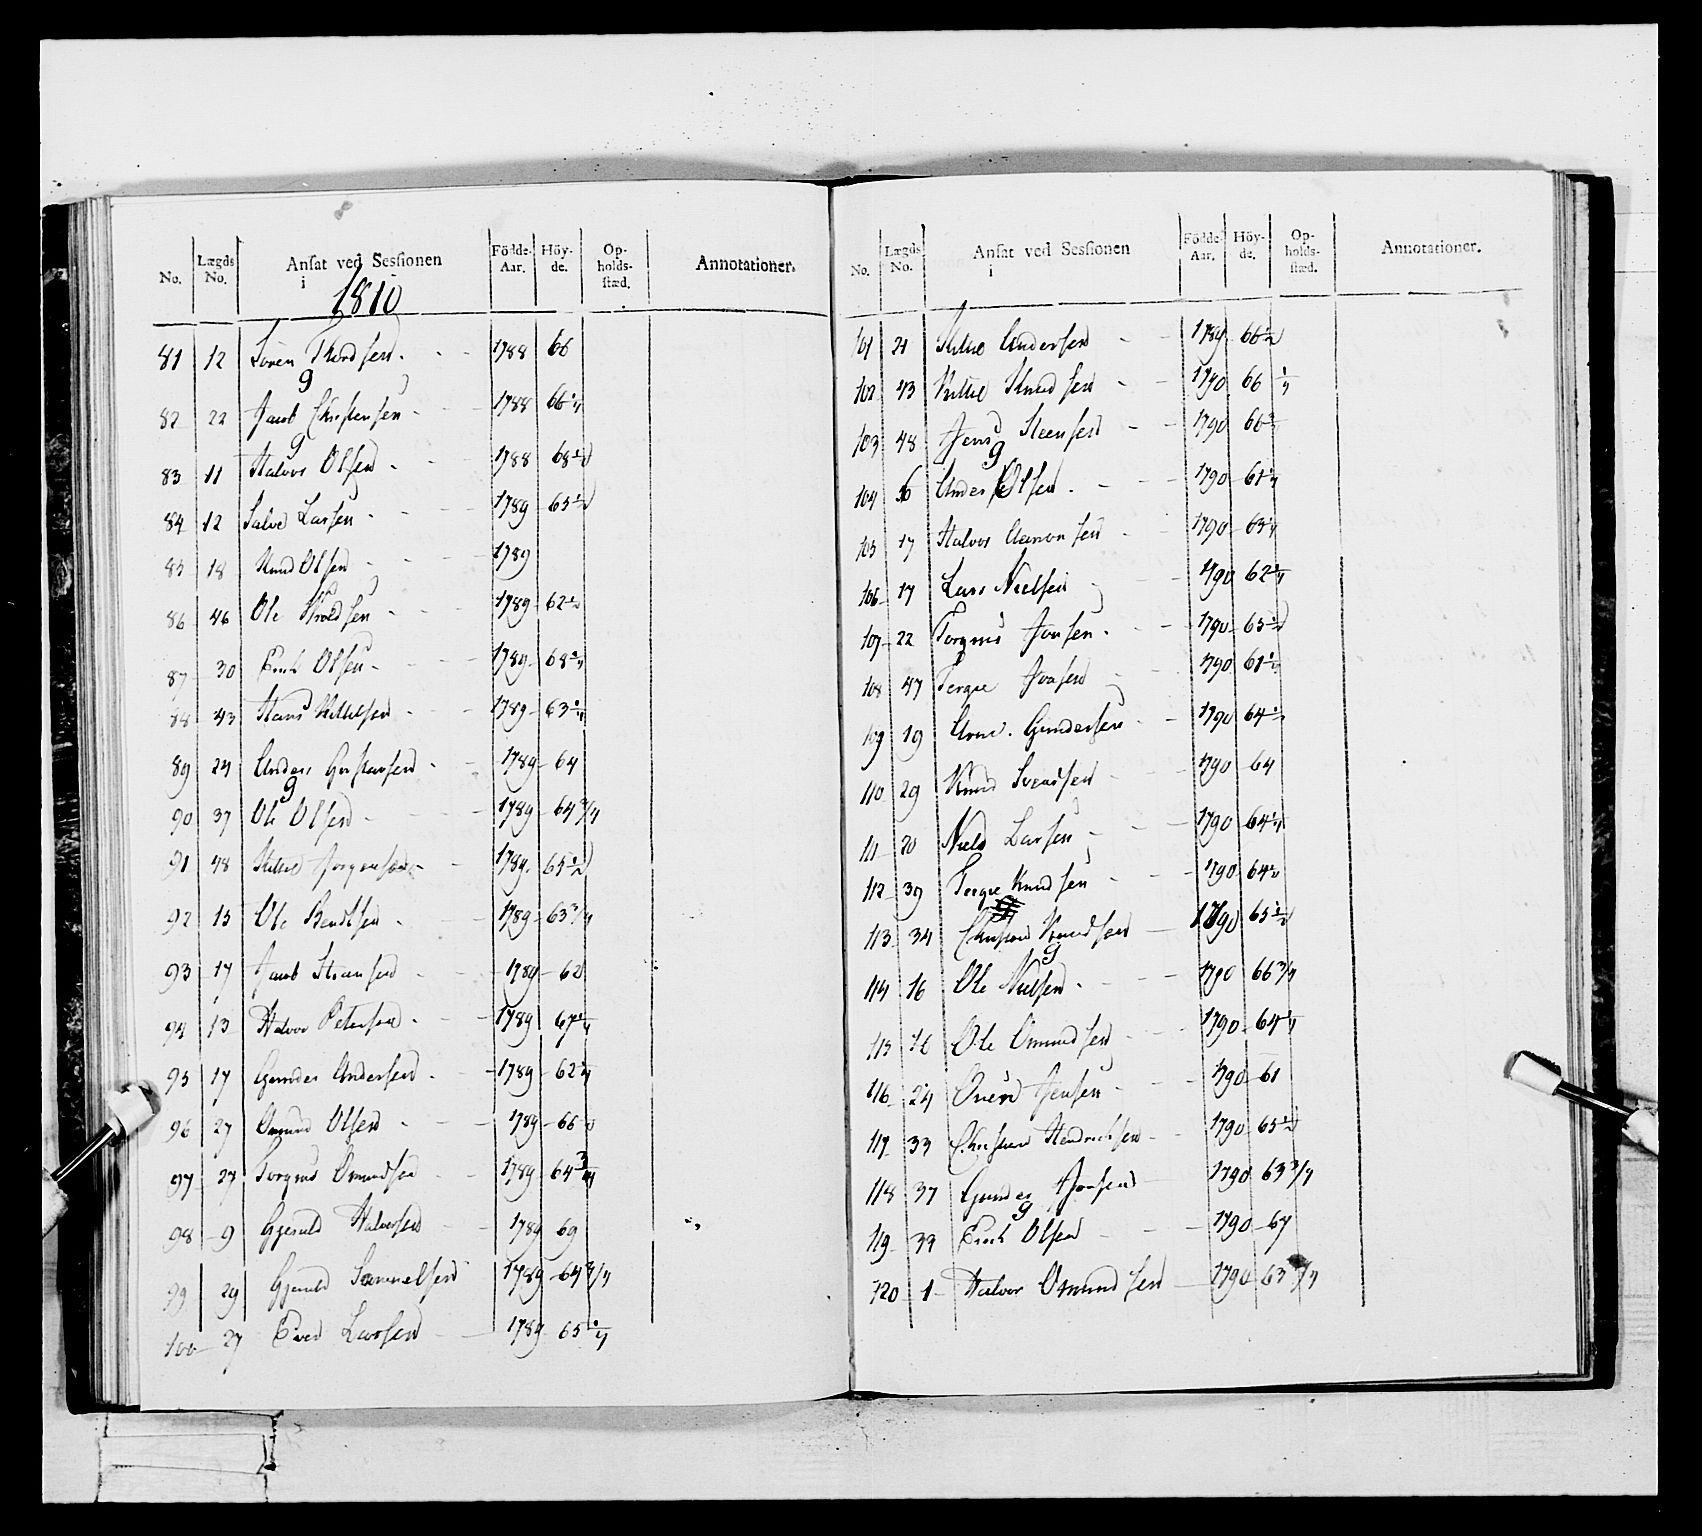 No. Lægds No. Ansat ved Sessionen i 1810 Födde-Aar. Höy-de. Op-holds-stæd. Annotationer.
81 12 Sören Thordsen 1788 66
82 22 Jacob Christensen 1788 66 1/4
83 11 Halvor Olsen 1788 68 1/2
84 12 Salve Larsen 1789 65 1/2
85 18 Knud Olsen 1789
86 46 Ole 1789 62 1/2
87 30 Erich Olsen 1789 68 1/4
88 43 Hans Kittelsen 1789 63 1/4
89 24 Anders 1789 64
90 37 Ole Olsen 1789 64 3/4
91 48 Kittel Jörgensen 1789 65 1/2
92 15 Ole Bendtsen 1789 63 3/4
93 17 Jacob 1789 62
94 13 Halvor Petersen 1789 67 1/4
95 17 Gunder Andersen 1789 62 1/4
96 27 Omund Olsen 1789 66 1/2
97 27 Torgrus Omundsen 1789 64 3/4
98 9 Gjeruld Halvorsen 1789 69
99 29 Gjeruld Sammelsen 1789 64 3/4
100 27 Even Larsen 1789 65 1/4
No. Lægds No. Ansat ved Sessionen i Födde-Aar. Höy-de. Op-holds-stæd. Annotationer.
101 21 Kittel Andersen 1789 66 1/2
102 43 Kittel Knudsen 1790 66 1/4
103 48 Jens Steensen 1790 66
104 36 Anders Olsen 1790 61 1/4
105 17 Halvor Aanonsen 1790 63 1/4
106 17 Lars Nielsen 1790 62 1/4
107 22 Torgrus Jonsen 1790 65 1/2
108 47 Tergie Jonsen 1790 61 1/2
109 19 Arne Gundersen 1790 64 1/2
110 29 Knud Svendsen 1790 64
111 20 Niels Larsen 1790 64 1/4
112 39 Tergie Knudsen 1790 64 1/2
113 34 Christen Knudsen 1790 65 1/2
114 16 Ole Nielsen 1790 66 3/4
115 16 Ole Omundsen 1790 64 1/4
116 24 Jensen 1790 61
117 33 Christen Hendrichsen 1790 65 1/2
118 37 Gunder Jonsen 1790 63 3/4
119 39 Erich Olsen 1790 67
120 1 Halvor Omundsen 1790 63 3/4